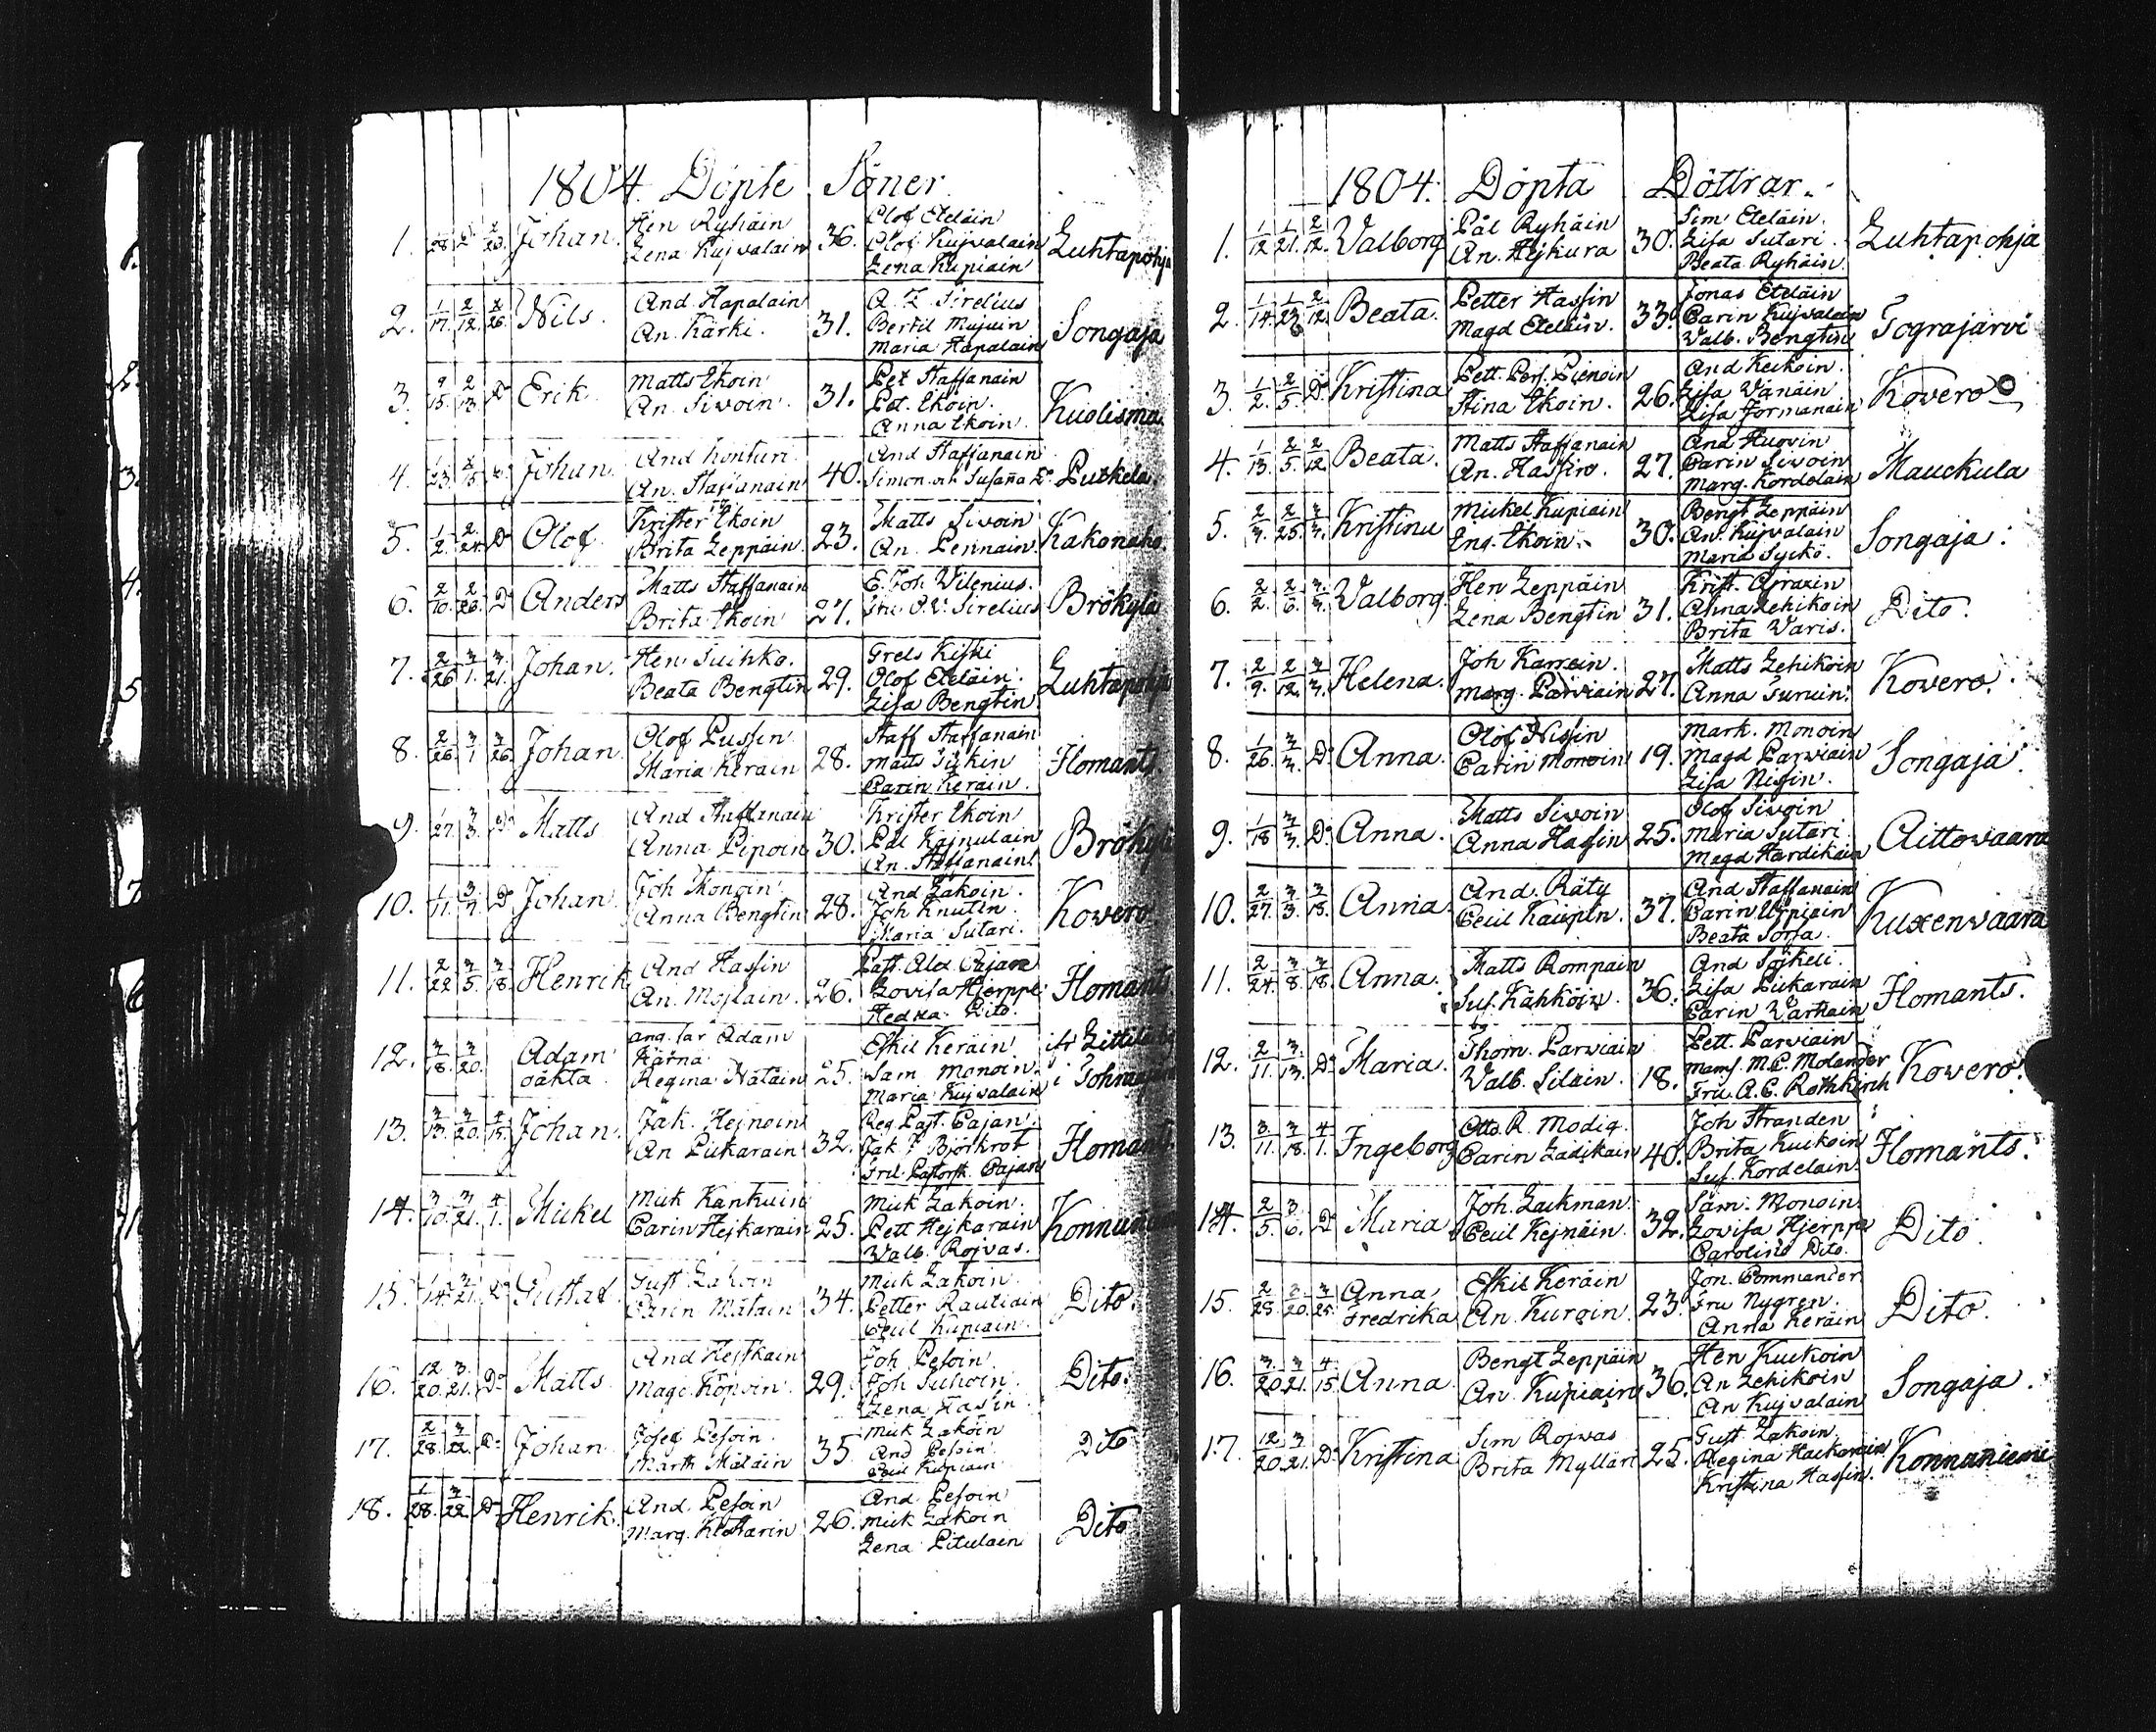 1804. Döpte Söner.
1. 1/28 2 2/20. Johan. Hen Ryhäin Lena Kujvalain 36. Olof Eteläin Olof Kujvalain Lena Kupiain Luhtapohja
2. 1/17. 2/12. 2/26. Nils. And Hapalain An. Kärki. 31. A. L. Sirelius Bertil Mujuin Maria Hapalain Songaja
3. 9/15. 2/13. Do Erik. Matts Ekoin An. Sivoin. 31. Pet Staffanain Pet. Ekoin. Anna Ekoin. Kuolisma
4. 1/23. 2/15. Do Johan. And Konturi An. Staffanain 40. And Staffanain Simon och Susaña Do Putkela
5. 1/2. 2/24. Do Olof. Krister Ekoin Brita Leppäin. 23. Matts Sivoin An. Pennain. Kakonaho.
6. 2/10. 2/26. Do Anders Matts Staffanain Brita Ekoin 27. E. Joh. Wilenius. Fru O. V. Sirelius Brökylä
7. 2/26. 3/1. 3/21. Johan. Hen. Suihko. Beata Bengtin 29. Grels Kiski Olof Eteläin. Lisa Bengtin Luhtapohja
8. 2/26. 3/1 3/26. Johan. Olof Pussin Maria Keräin 28. Staff Staffanain Matts Carin Keräin. Ilomants.
9. 1/27. 3/3. Do Matts And Staffanain Anna Pipoin 30. Krister Ekoin Pål Kajnulain An. Staffanain Brökylä
10. 1/11. 3/4. Do Johan. Joh Monoin. Anna Bengtin 28. And Lakoin. Joh Knutin Maria Sutari. Kovero
11. 2/22 3/5. 3/18. Henrik And Hassin An. Mojlain. 26. Past. Alex. Cajan Lovisa Hjerppe Hedda. Dito. Ilomants
12. 3/18. 3/20. Adam oäkta ang. far Adam Härnä Regina Nätäin 25. Eskil Keräin Sam Monoin. Maria Kujvalain
13. 3/13. 3/20. 4/15. Johan. Jak. Hejnoin An Pitkarain 32. Reg Past. Cajan. Jak F Björkrot Fru Pastorsk. Cajan Ilomants
14. 3/10. 3/21. 4/1. Mickel Mick Kankuin Carin Hejkarain 25. Mick Lakoin. Pett Hejkarain Walb. Rojvas. Konnuniemi
15. 1/14. 3/21. Do Gustaf. Gust Lakoin Carin Mätäin 34. Mick Lakoin Petter Rautiain Cecil Kupiain. Dito.
16. 12/20. 3/21. Do Matts And Hejskain Magd Köpoin. 29. Joh Pesoin. Joh Suhoin. Lena Hassin. Dito.
17. 2/28. 3/22. Do Johan Josef Pesoin. Marth Mätäin 35 Mick Lakoin And Pesoin Cecil Kupiain Dito
18. 1/28. 3/22. Do Henrik. And. Pesoin Marg. 26. And. Pesoin Mick Lakoin Lena Pitulain Dito
1804. Döpta Döttrar.
1. 1/12 1/21. 2/12. Valborg Pål Ryhäin An. Hejkura 30. Sim Eteläin. Lisa Sutari. Beata Ryhäin. Luhtapohja
2. 1/14. 1/23 2/12. Beata. Petter Hassin Magd Eteläin. 33. Jonas Eteläin Carin Kujvalain Valb. Bengtin Tograjärvi
3. 1/2. 2/5. Do Kristina Pett. Pers. Pienoin Stina Ekoin. 26. And Keikoin. Lisa Vänäin Lisa Jormanain Kovero
4. 1/13. 2/5. 2/12. Beata. Matts Staffanain An. Hassin. 27. And Huovin Carin Sivoin Marg. Kordelain Mauckula
5. 2/3. 2/25. 3/3. Kristina Mickel Kupiain Eng. Ekoin. 30. Bengt Leppäin An. Kujvalain Maria Syckö. Songaja.
6. 2/2. 2/6. 3/3. Valborg. Hen Leppäin Lena Bengtin 31. Krist. Ajraxin Anna Lehikoin Brita Varis. Dito.
7. 2/9. 2/12. 3/3. Helena. Joh Karrein. Marg. Parviain 27. Matts Lehikoin Anna Turuin. Kovero.
8. 1/26. 3/3. Do Anna. Olof Nissin Carin Monoin 19. Mark. Monoin Magd Parviain Lisa Nissin. Songaja.
9. 1/18 3/3. Do Anna. Matts Sivoin Anna Hassin 25. Olof Sivoin Maria Sutari Magd Hardikain Aittovaara
10. 2/27. 3/3. 3/15. Anna And. Räty Cecil Kaupin. 37. And Staffanain Carin Urpiain Beata Sorsa. Kuxenvaara
11. 2/24. 3/8. 3/18. Anna. Matts Rompain Sus. Kähköin. 36. And Söjkeli. Lisa Pitkarain Carin Wartiain Ilomants.
12. 2/11. 3/13. Do Maria. Thom. Parviain Valb. Siläin. 18. Pett. Parviain Mams. M. C. Molander Fru. A. C. Rothkirch Kovero.
13. 3/11. 3/18. 4/1. Ingeborg Otto R. Modig. Carin Ladikain 40. Joh Stranden Brita Kuikoin Sus. Kordelain. Ilomants.
14. 2/5. 3/6. Do Maria Joh. Lackman. Cecil Kejnäin. 32. Sam. Monoin. Lovisa Hjerppe Carolina Dito. Dito
15. 2/28. 3/20. 3/25. Anna Fredrika Eskil Keräin An. Kuroin. 23. Jon. Commander Fru Nygren. Anna Keräin Dito.
16. 3/20. 3/21. 4/15 Anna Bengt Leppäin An. Kupiain 36. Hen Kuikoin An Lehikoin An Kujvalain Songaja.
17. 12/20. 3/21. Do Kristina Sim Rojvas Brita Mylläri 25. Gust. Lakoin. Regina Kristina Hassin. Konnuniemi